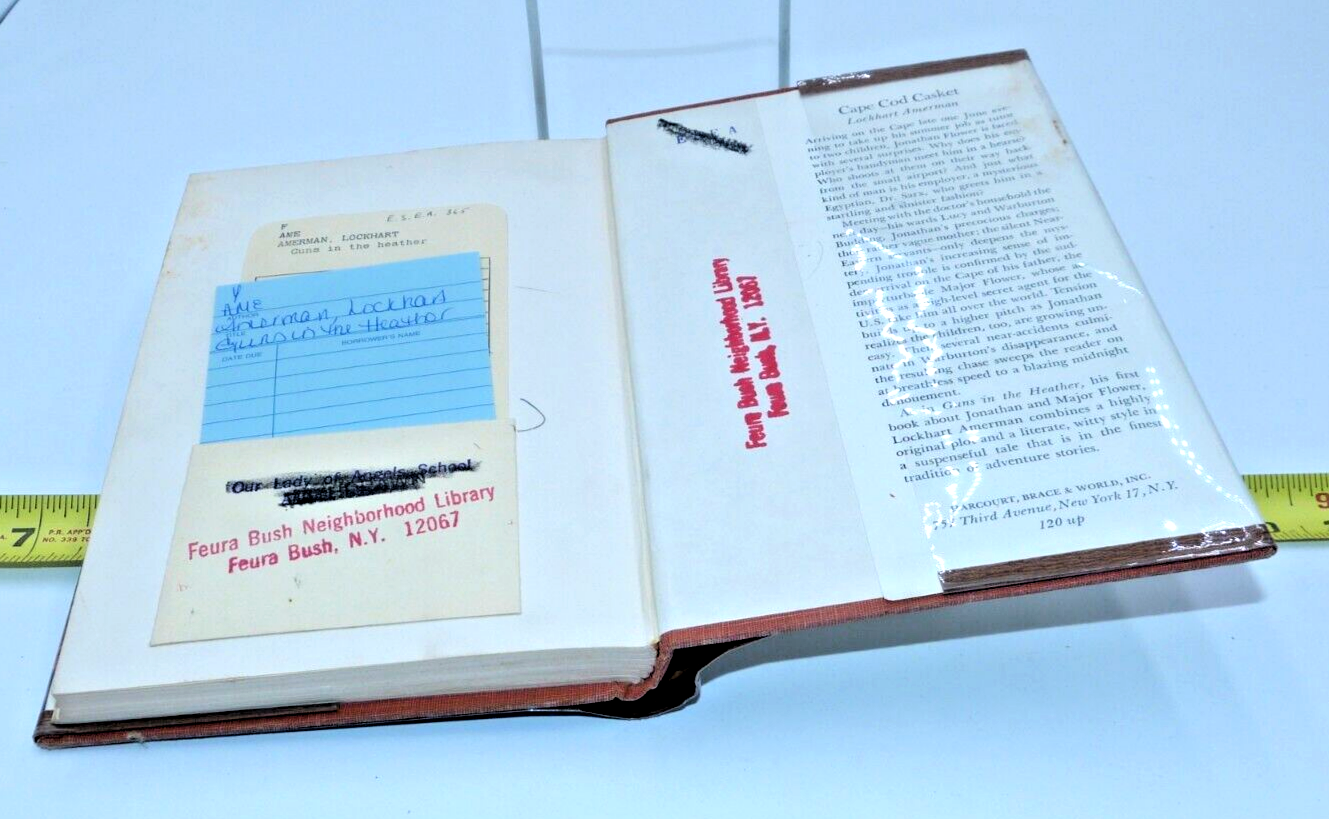 E.S.E.A. 865
F
AME
AMERMAN, LOCKHART
Guns in the heather
AME
Amerman, Lockhart
TITLE
Guns in the Heather
DATE DUE
BORROWER'S NAME
Our Lady of Angels School
Feura Bush Neighborhood Library
Feura Bush, N.Y. 12067
Feura Bush Neighborhood Library
Feura Bush, N.Y. 12067
Cape Cod Casket
Lockhart Amerman
Arriving on the Cape late one June eve-
ning to take up his summer job as tutor
to two children, Jonathan Flower is faced
with several surprises. Why does his em-
ployer's handyman meet him in a hearse?
Who shoots at them on their way back
from the small airport? And just what
kind of man is his employer, a mysterious
Egyptian, Dr. Sara, who greets him in a
startling and sinister fashion?
Meeting with the doctor's household the
day—his wards Lucy and Warburton
Jonathan's precocious charges;
vague mother; the silent Near-
Eastern servants—only deepens the mys-
tery. Jonathan's increasing sense of im-
pending trouble is confirmed by the sud-
den arrival on the Cape of his father, the
imperturbable Major Flower, whose ac-
tivities as a high-level secret agent for the
U.S. take him all over the world. Tension
builds to a higher pitch as Jonathan
realizes the children, too, are growing un-
easy. Then several near-accidents culmi-
nate in Warburton's disappearance, and
the resulting chase sweeps the reader on
at breathless speed to a blazing midnight
denouement.
As in Guns in the Heather, his first
book about Jonathan and Major Flower,
Lockhart Amerman combines a highly
original plot and a literate, witty style in
a suspenseful tale that is in the finest
tradition of adventure stories.
HARCOURT, BRACE & WORLD, INC.
Third Avenue, New York 17, N.Y.
120 up
7
P.R. APP'D
9